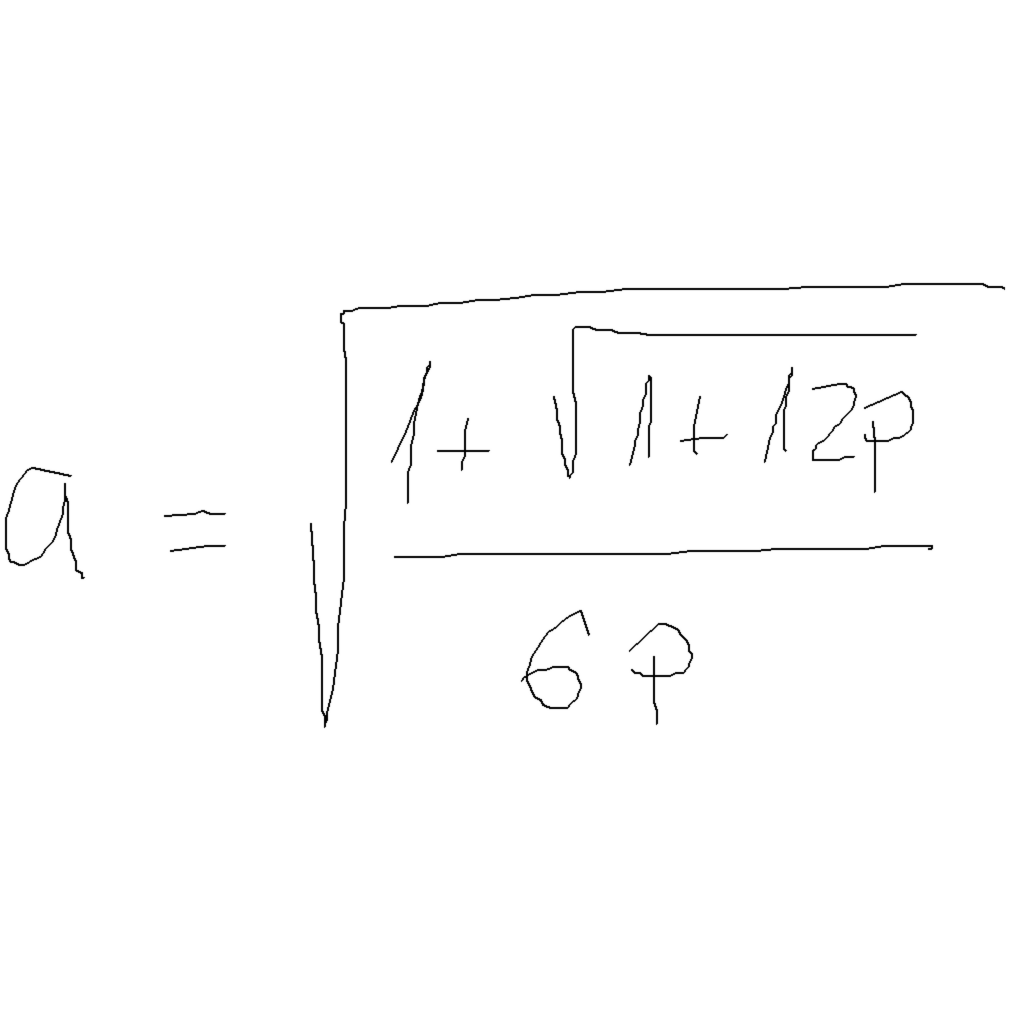 a = √((1 + √(1 + 12p)) / (6p))